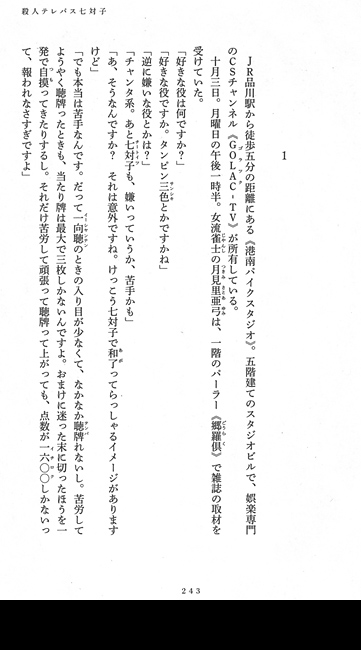 殺人テレパス七対子
1
ＪＲ品川駅から徒歩五分の距離にある《港南バイクスタジオ》。五階建てのスタジオビルで、娯楽専門
のＣＳチャンネル《ＧＯＬＡＣ‐ＴＶ》が所有している。
十月三日。月曜日の午後一時半。女流雀士の月見里亜弓は、一階のパーラー《郷羅倶》で雑誌の取材を
受けていた。
「好きな役は何ですか？」
「好きな役ですか。タンピン三色とかですかね」
「逆に嫌いな役とかは？」
「チャンタ系。あと七対子も、嫌いっていうか、苦手かも」
「あ、そうなんですか？　それは意外ですね。けっこう七対子で和了ってらっしゃるイメージがあります
けど」
「でも本当は苦手なんです。だって一向聴のときの入り目が少なくて、なかなか聴牌れないし。苦労して
ようやく聴牌ったときも、当たり牌は最大で三枚しかないんですよ。おまけに迷った末に切ったほうを一
発で自摸ってきたりするし。それだけ苦労して頑張って聴牌って上がっても、点数が一六〇〇しかないっ
て、報われなさすぎですよ」
243